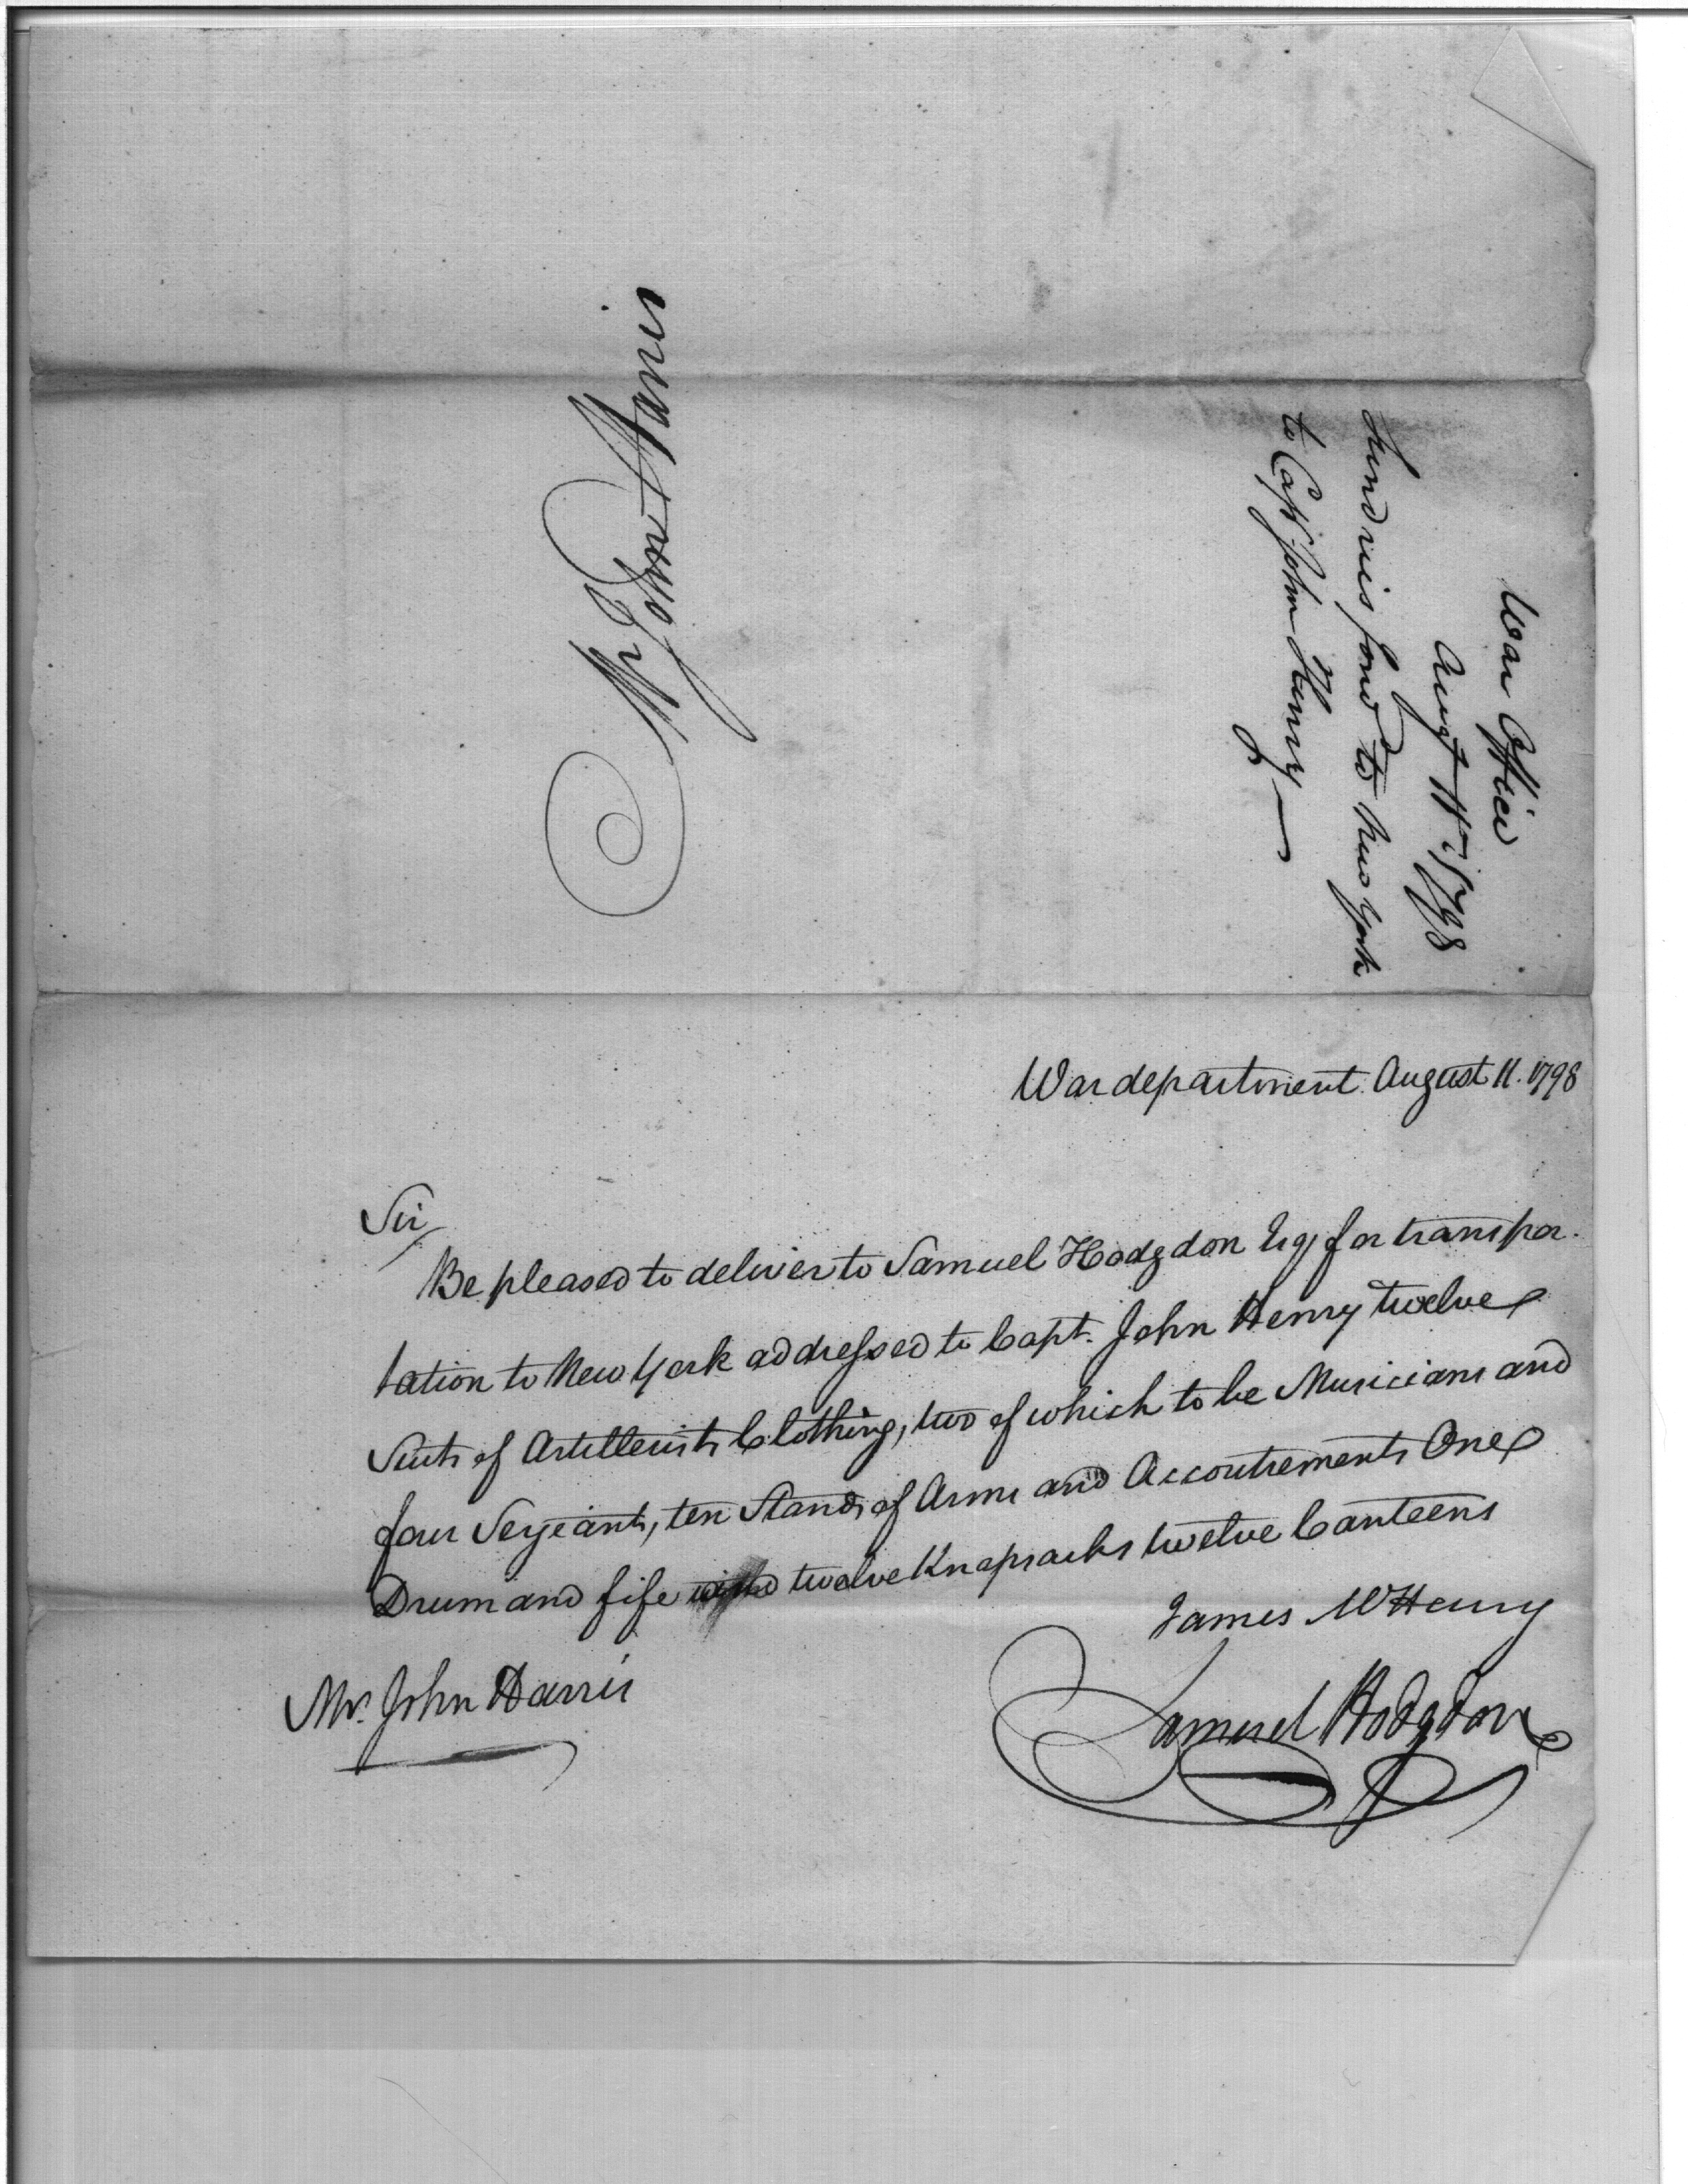 Mr. John Harris
War Office
Augt 11th 1798
Sundries forwd to New York
to Capt John Henry
War department August 11. 1798
Sir,
Be pleased to deliver to Samuel Hodgdon Esq, for transpor-
tation to New York addressed to Capt. John Henry twelve
Suits of Artillerists Clothing, two of which to be Musicians and
four Serjeants, ten Stands of Arms and Accoutrements One
Drum and fife twelve Knapsacks twelve Canteens
James McHenry
Samuel Hodgdon
Mr. John Harris